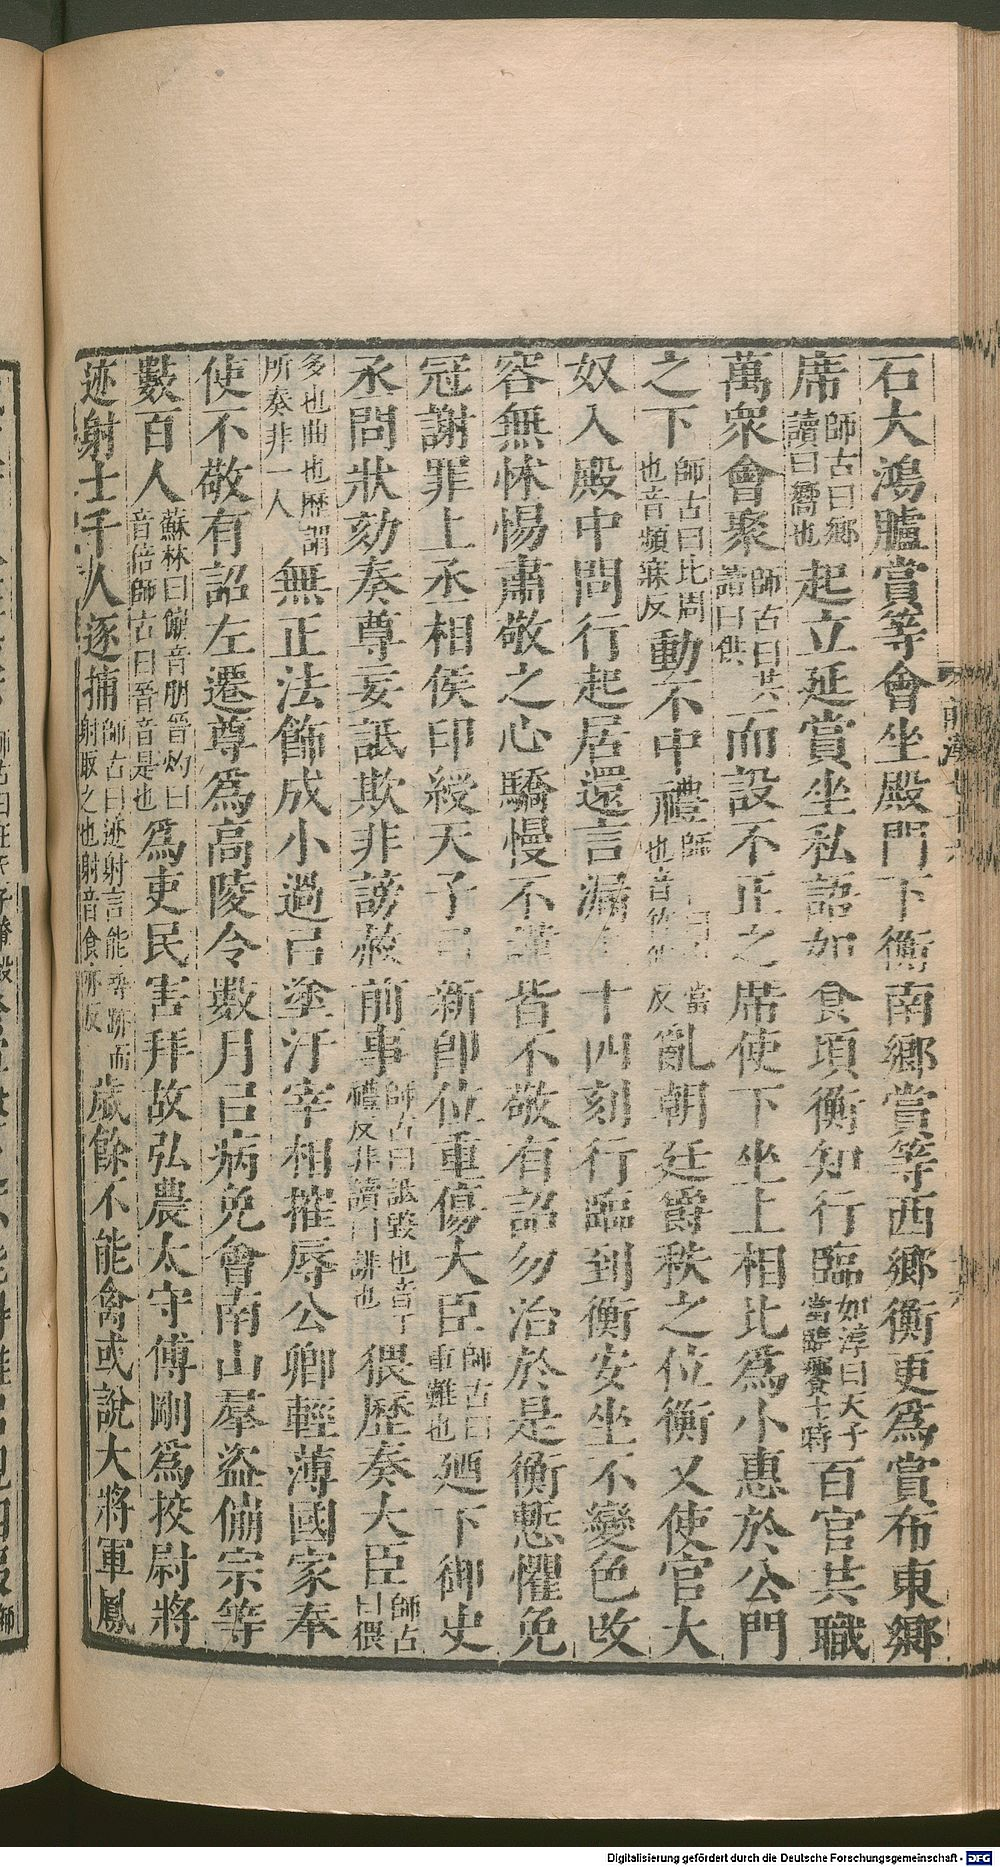 石大鴻臚賞等會坐殿門下衡南鄉賞等西鄉衡更爲賞布東鄉
席師古曰鄉讀曰嚮也起立延賞坐私語如食頃衡知行臨如淳曰天子當臨饗食士時百官共職
萬衆會聚師古曰共讀曰供而設不正之席使下坐上相比爲小惠於公門
之下師古曰比周也音頻寐反動不中禮師當也音竹仲反亂朝廷爵秩之位衡又使官大
奴入殿中問行起居還言漏十四刻行臨到衡安坐不變色改
容無怵惕肅敬之心驕慢不謹皆不敬有詔勿治於是衡慙懼免
冠謝罪上丞相侯印綬天子㠯新卽位重傷大臣師古曰重難也廼下御史
丞問狀劾奏尊妄詆欺非謗赦前事師古曰詆毀也音丁禮反非讀曰誹也猥歷奏大臣師古曰猥
多也曲也歷謂所奏非一人無正法飾成小過㠯塗汙宰相摧辱公卿輕薄國家奉
使不敬有詔左遷尊爲高陵令數月㠯病免會南山羣盜傰宗等
數百人蘇林曰傰音朋晉灼曰音倍師古曰晉音是也爲吏民害拜故弘農太守傅剛爲校尉將
迹射士千人逐捕師古曰迹射言能尋跡而射取之也射音食亦反歲餘不能禽或說大將軍鳳
Digitalisierung gefördert durch die Deutsche Forschungsgemeinschaft - DFG